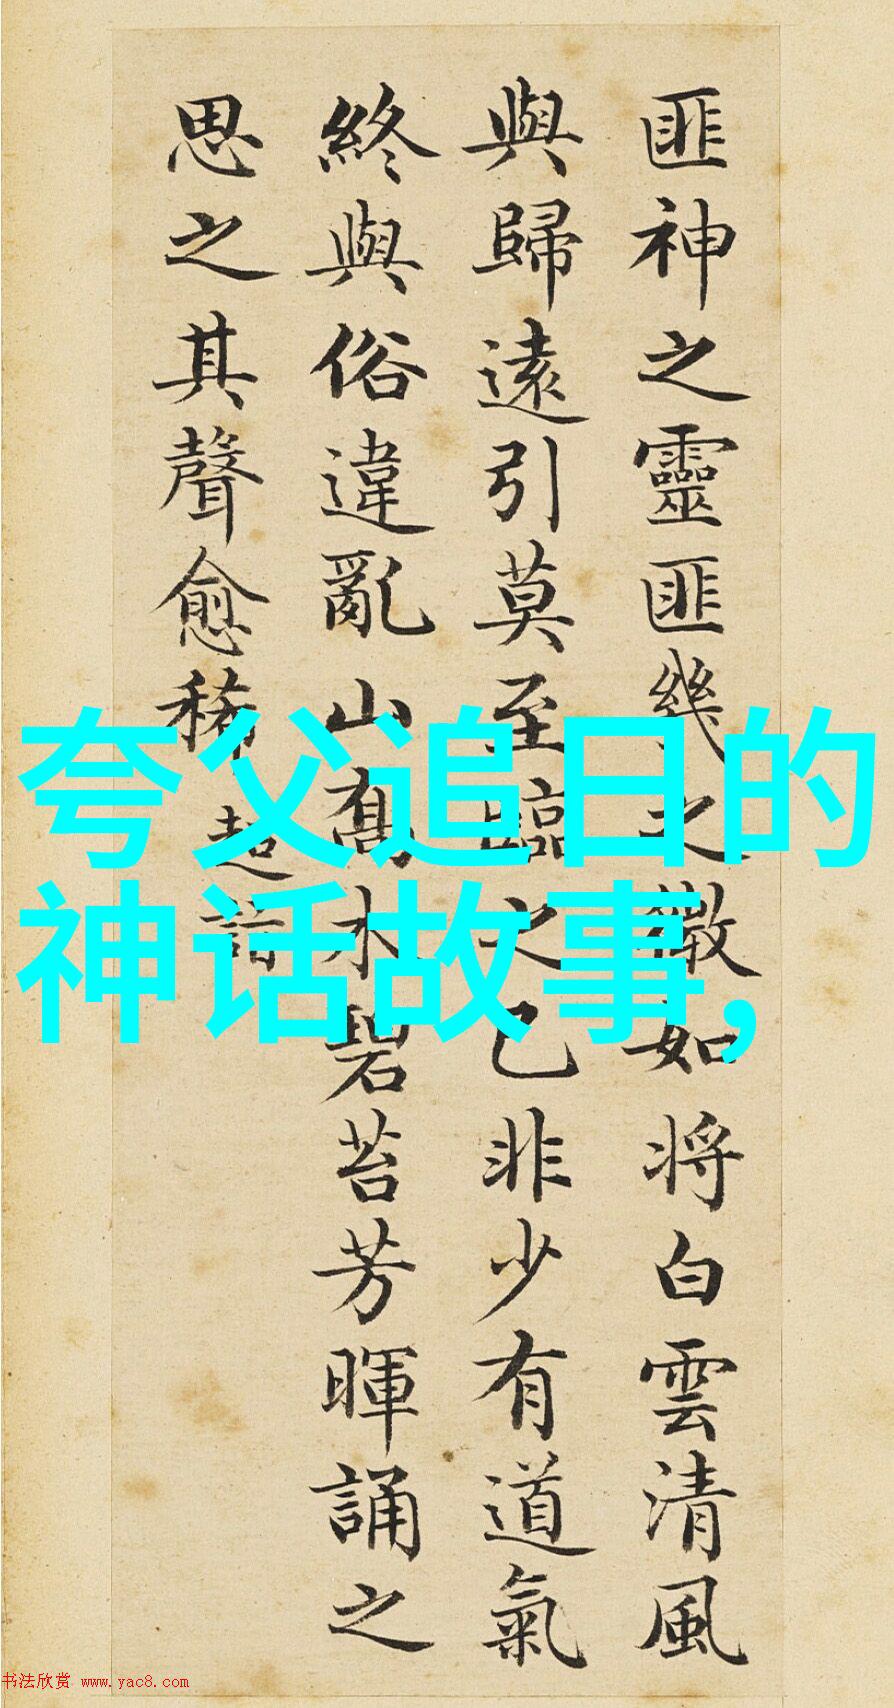 夸父追日的
神话故事,
匪神之靈匪幾之微如将白雲清風
與歸遠引莫至臨之已非少有道氣
終與俗違亂山喬木碧苔芳暉誦之
思之其聲愈稀 超詣
书法欣赏 www.yac8.com